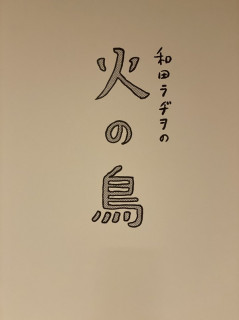 和田ラヂヲの
火の鳥